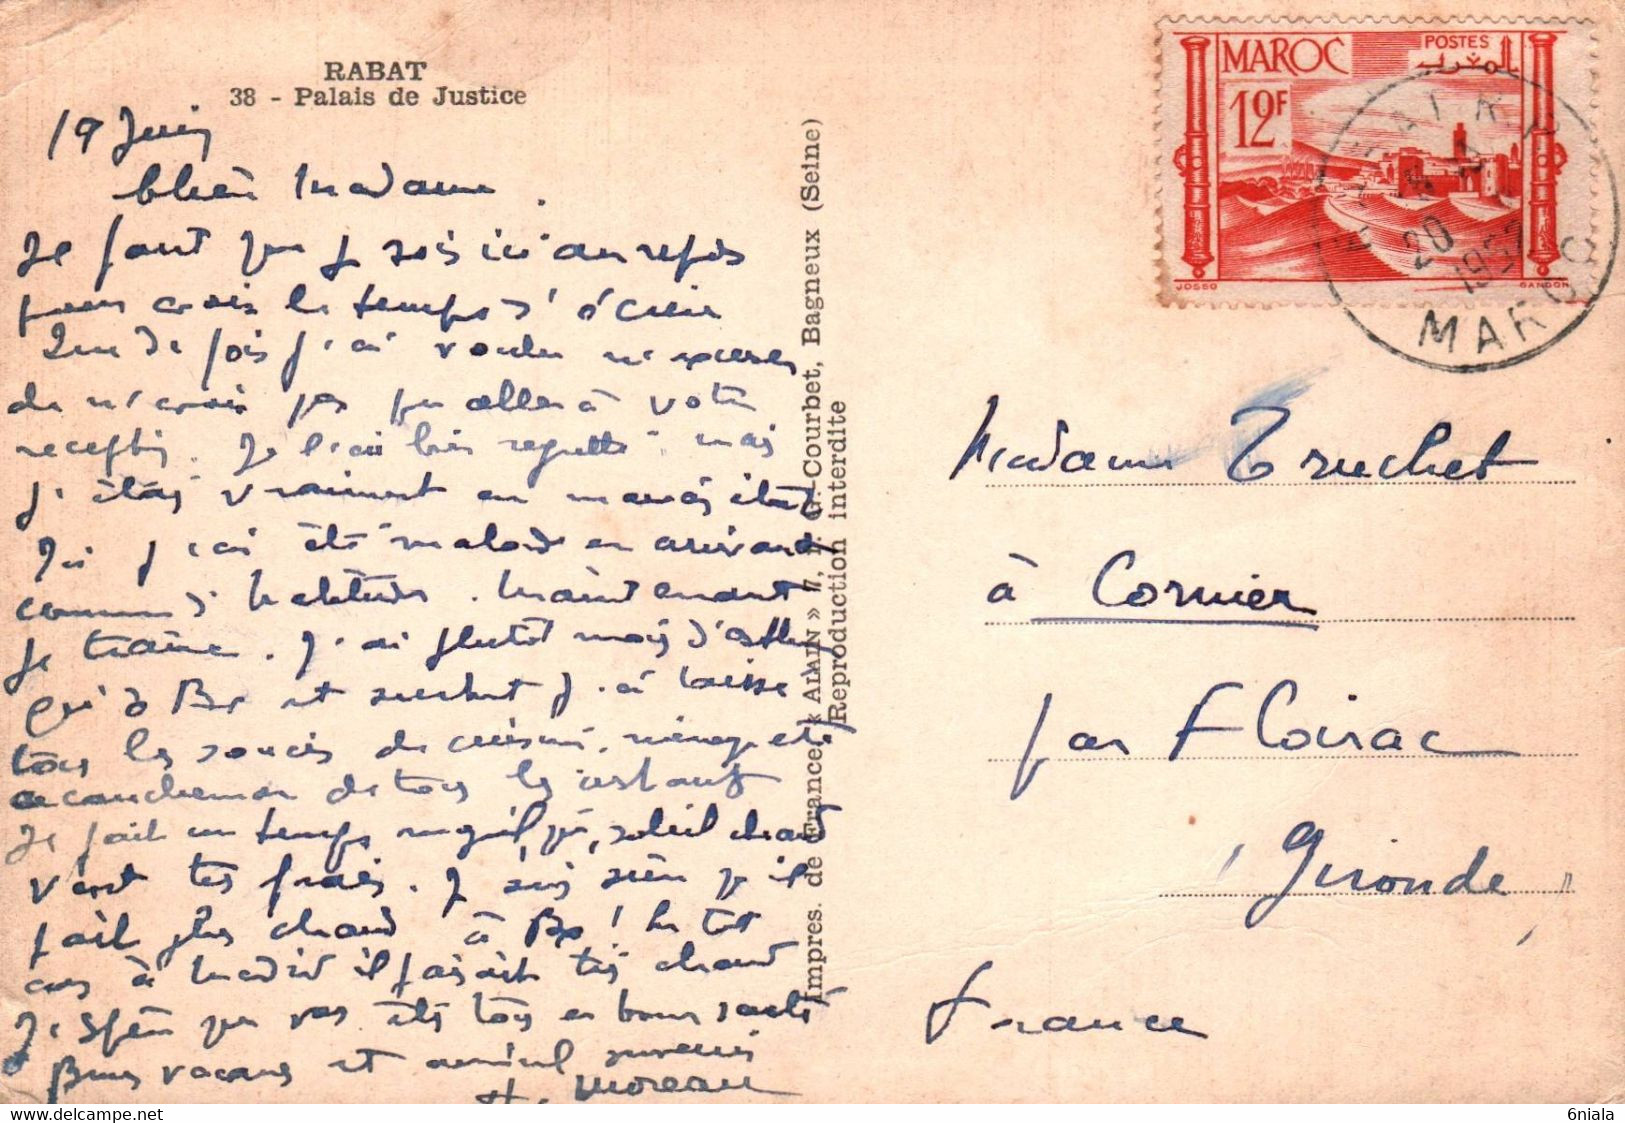 RABAT
38 - Palais de Justice
19 Juin
Chère Madame.
Il faut que je sois ici au repos
pour avoir le temps d'écrire
Que de fois j'ai voulu m'excuser
de n'avoir pas pu aller à votre
reception. Je l'ai bien regretté. mais
j'étais vraiment en mauvais état
Ici j'ai été malade en arrivant
comme d'habitude. Maintenant
je traine. J'ai plutôt moins d'asthme
qu'à Bx et surtout j'ai laissé
tous les soucis de cuisine, ménage etc
cauchemar de tous les instants
Il fait un temps magnifique, soleil chaud
vent très frais. Je sais qu'il
fait plus chaud à Bx! En tout
cas à Madrid il faisait très chaud
J'espère que vous êtes tous en bonne santé
Bonnes vacances et amical souvenir
H. Moreau
Impres. de France « ALAIN » 7, r. G.-Courbet, Bagneux (Seine)
Reproduction interdite
MAROC
POSTES
المغرب
12F
JOSSO
GANDON
20
MAROC
Madame Truchet
à Cormier
par Floirac
(Gironde)
France
6niala